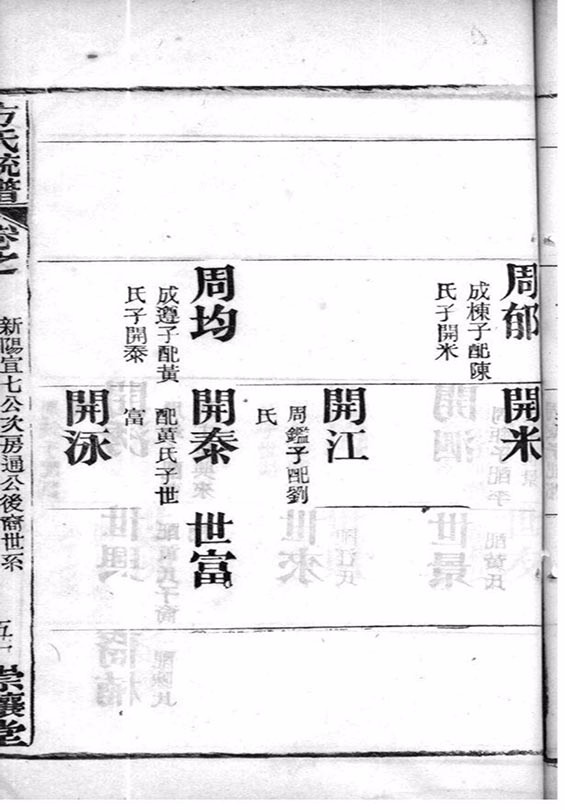 周郁
成棟子配陳
氏子開米
開米
開江
周鑑子配劉
氏
周均
成遵子配黃
氏子開泰
開泰
配黃氏子世
富
世富
開泳
方氏統譜
卷之
新陽宜七公次房通公後裔世系
崇讓堂